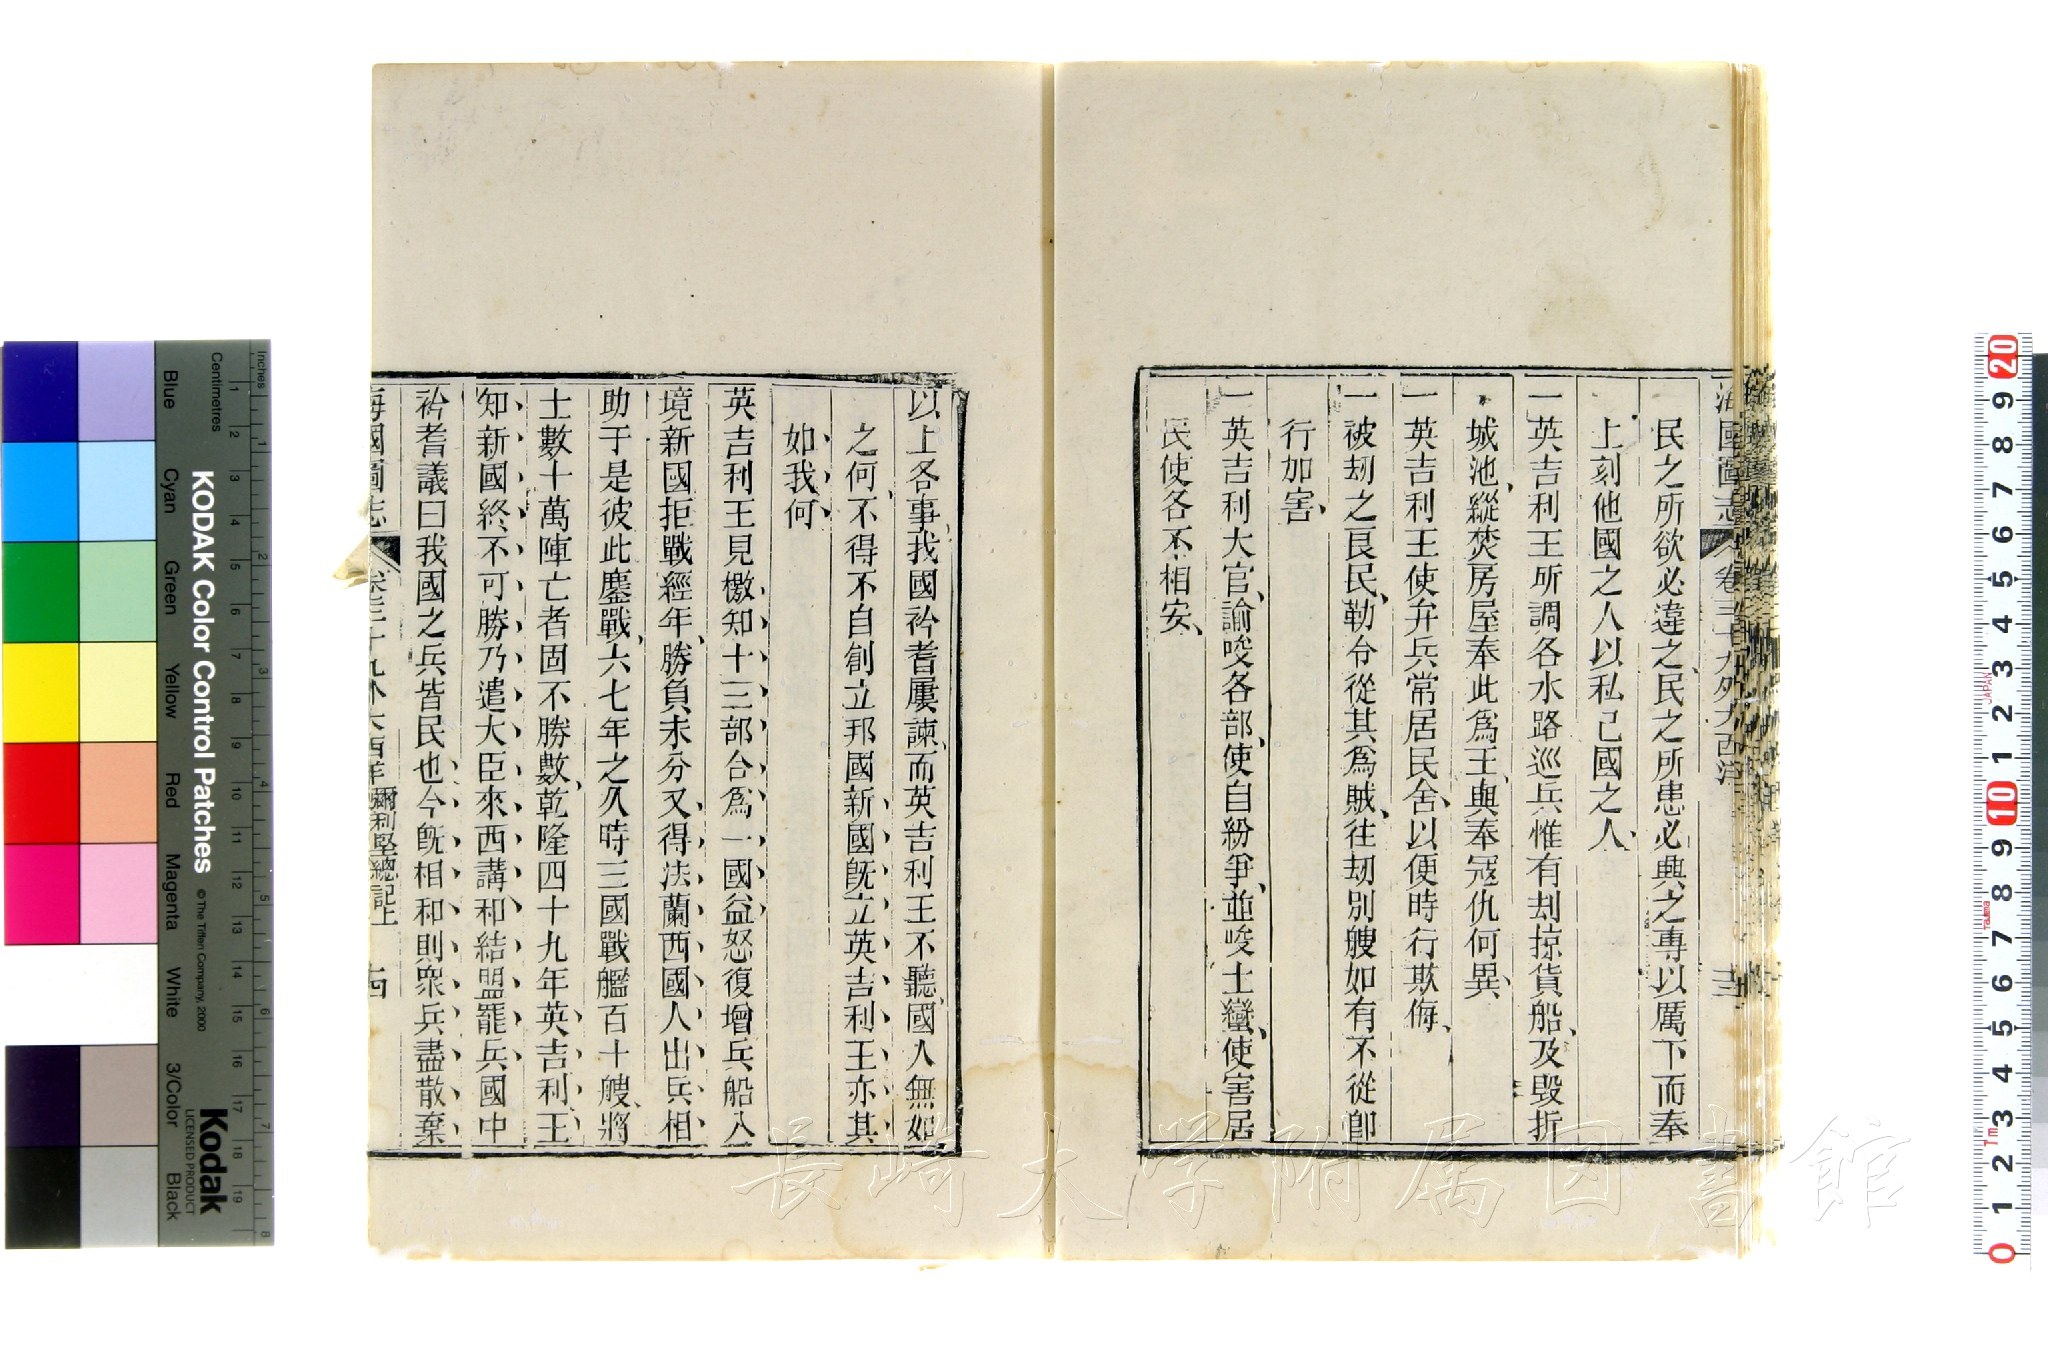 海國圖志
卷三十九外大西洋
民之所欲必違之、民之所患必興之專以厲下而奉
上刻他國之人以私己國之人、
一英吉利王所調各水路巡兵惟有刦掠貨船、及毀折
城池、縱焚房屋奉此爲王、與奉寇仇何異、
一英吉利王使弁兵常居民舍、以便時行欺侮、
一被刼之艮民、勒令從其爲賊、往刼別艘如有不從卽
行加害、
一英吉利大官、諭唆各部、使自紛爭、並唆土蠻、使害居
民使各不相安、
以上各事、我國衿耆屢諫、而英吉利王不聽、國人無如
之何、不得不自創立邦國、新國旣立英吉利王亦其
如我何
英吉利王見檄知十三部合爲一國益怒復增兵船入
境新國拒戰經年、勝負未分又得法蘭西國人出兵相
助于是彼此鏖戰、六七年之久時三國戰艦百十艘、將
士數十萬陣亡者固不勝數、乾隆四十九年英吉利王
知新國終不可勝乃遣大臣來西講和結盟罷兵國中
衿耆議曰我國之兵皆民也今旣相和則衆兵盡散棄
海國圖志
卷三十九外大西洋
彌利堅總記上
十四
KODAK Color Control Patches
© The Tiffen Company, 2000
Kodak
LICENSED PRODUCT
Inches
Centimetres
Blue
Cyan
Green
Yellow
Red
Magenta
White
3/Color
Black
JAPAN
長崎大学附属図書館